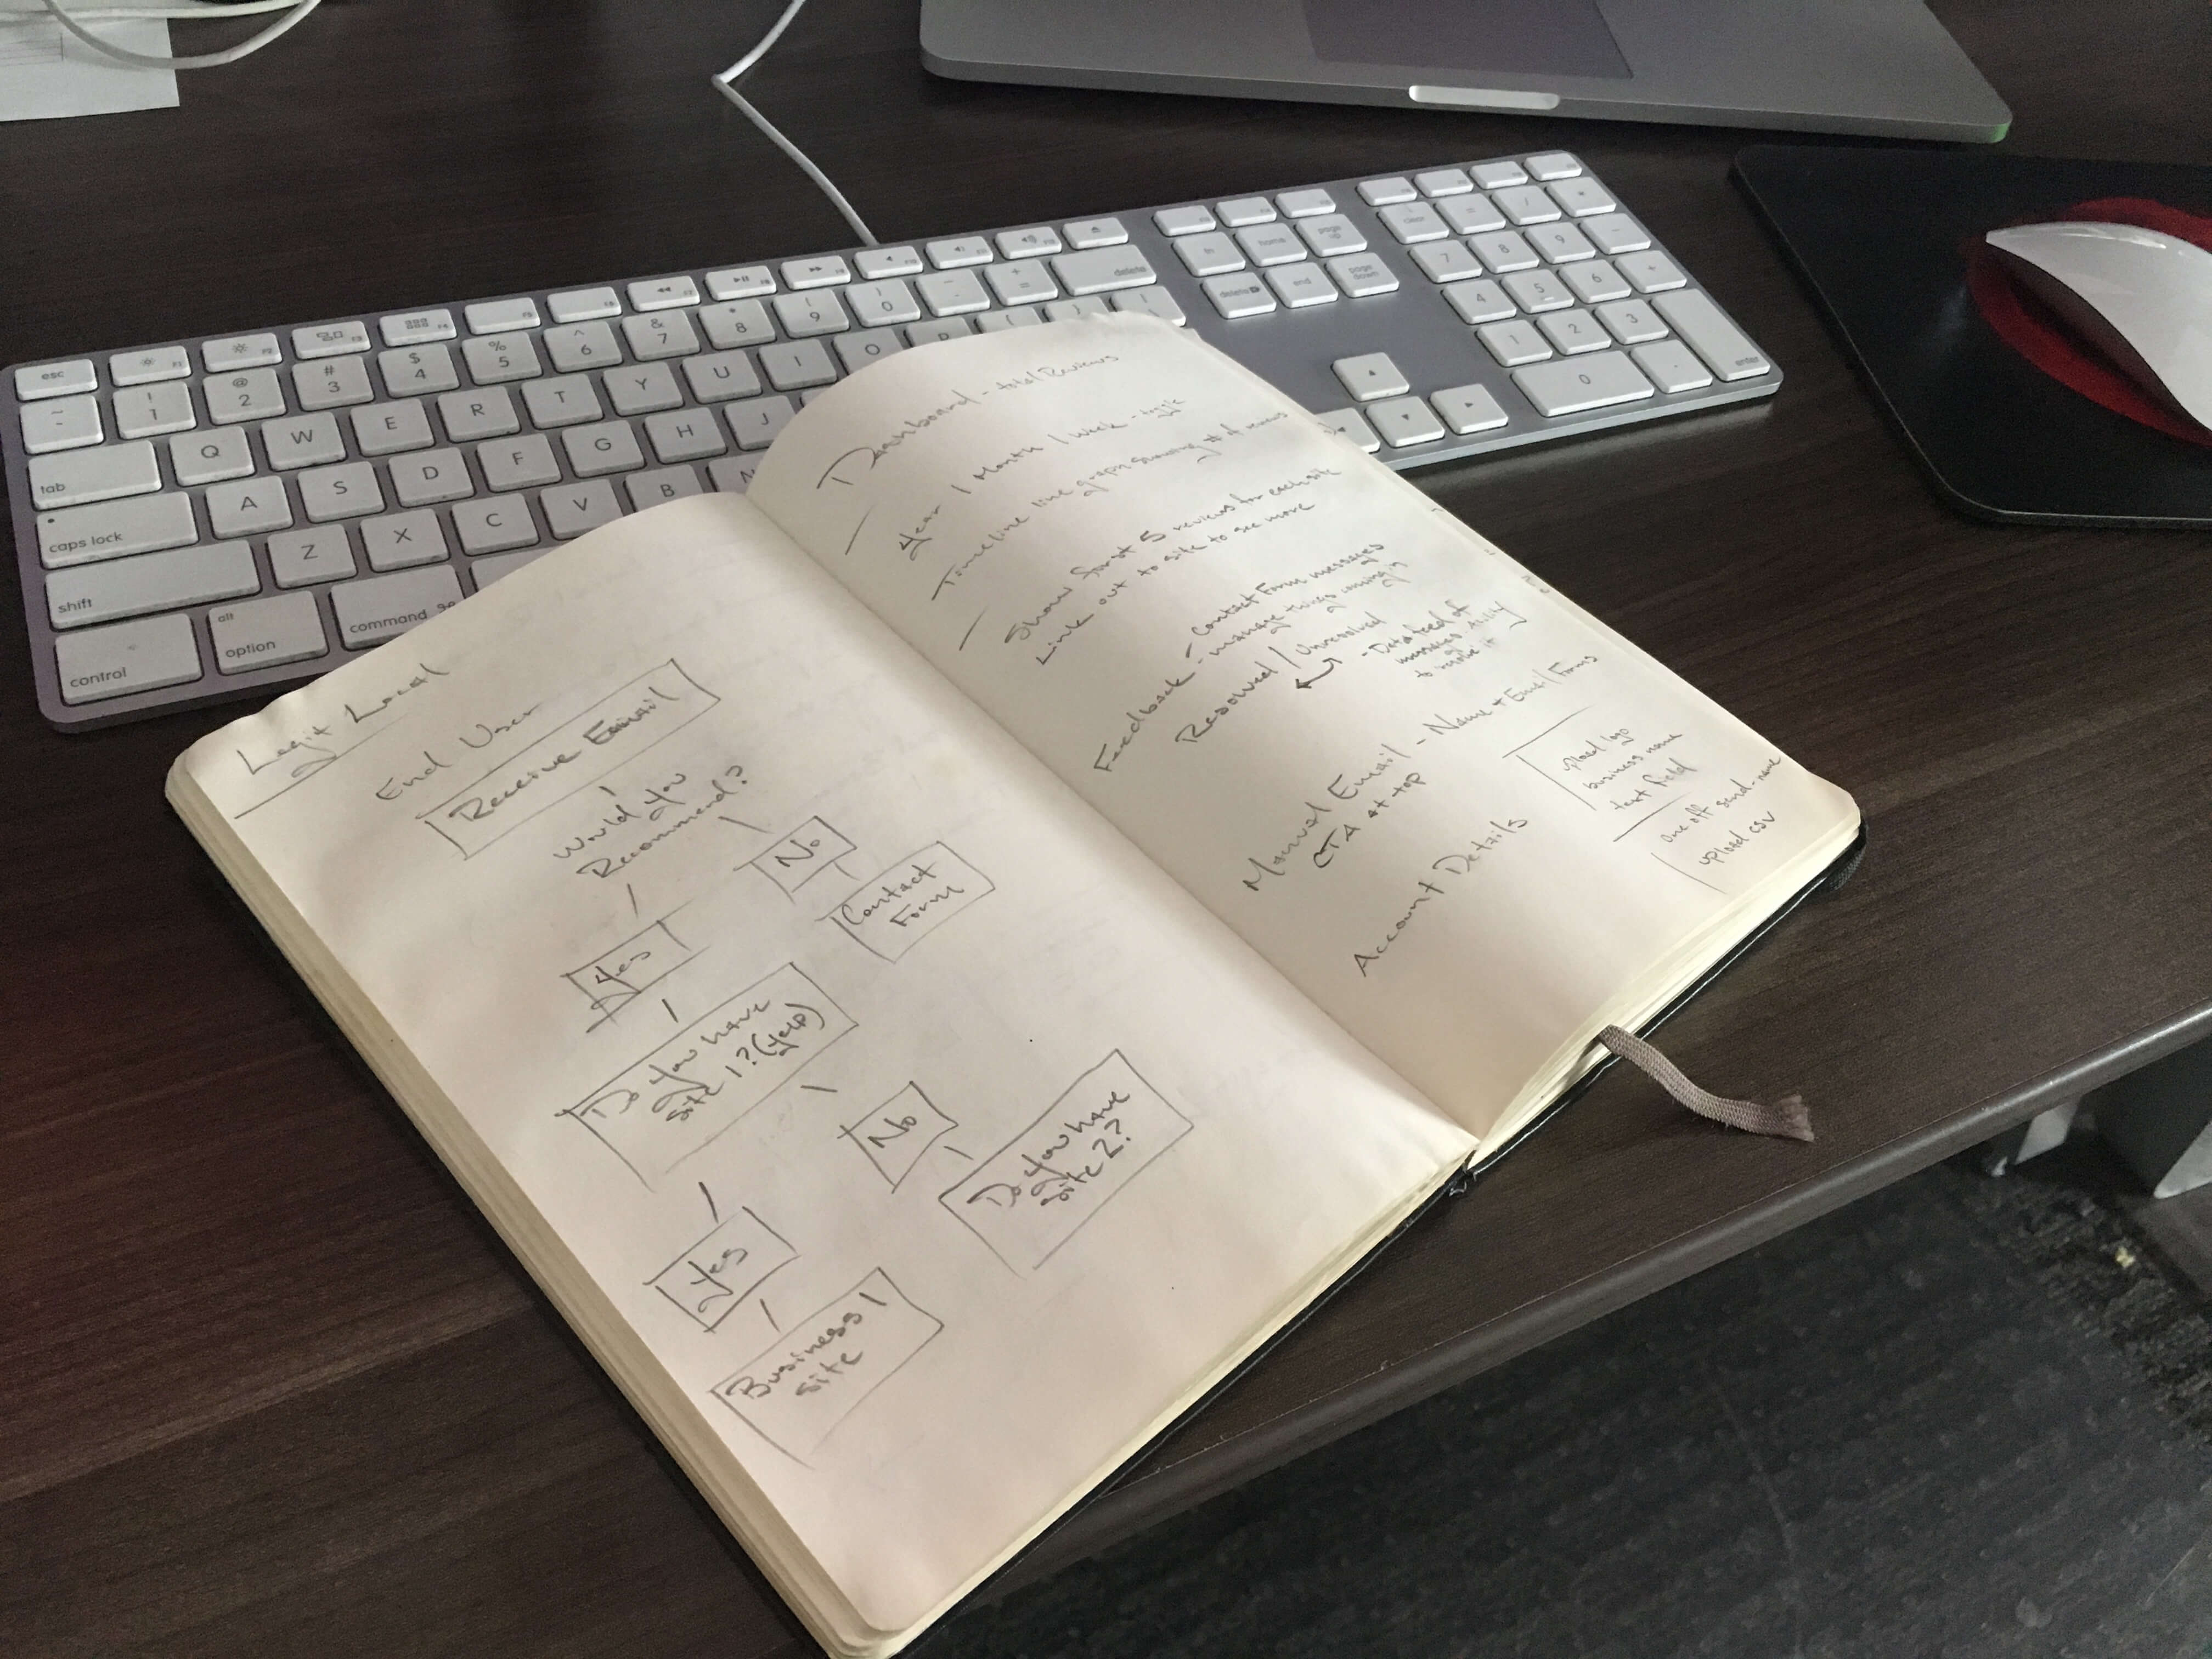 Legit Local
End User
Receive Email
Would you
Recommend?
No
Contact
Form
Yes
Do you have
site 1? (yelp)
No
Do you have
site 2?
Yes
Business 1
site
Dashboard - total Reviews
Year | Month | Week - toggle
Timeline line graph showing # of reviews
Show first 5 reviews for each site
Link out to site to see more
Feedback - Contact Form messages
- manage things coming in
Resolved | Unresolved
- Data feed of
messages ability
to resolve it
Manual Email - Name + Email Forms
CTA at top
upload logo
business name
text field
One off send - name
upload csv
Account Details
esc
F1
F2
F3
F4
F5
F6
F7
F8
F9
F10
F11
F12
~ ! 1 @ 2 # 3 $ 4 % 5 ^ 6 & 7 * 8 9 0 - + = delete
tab Q W E R T Y U I O P
caps lock A S D F G H J
shift Z X C V B N
control alt option command
fn home page up
delete end page down
clear = / *
7 8 9 -
4 5 6 +
1 2 3
0 . enter